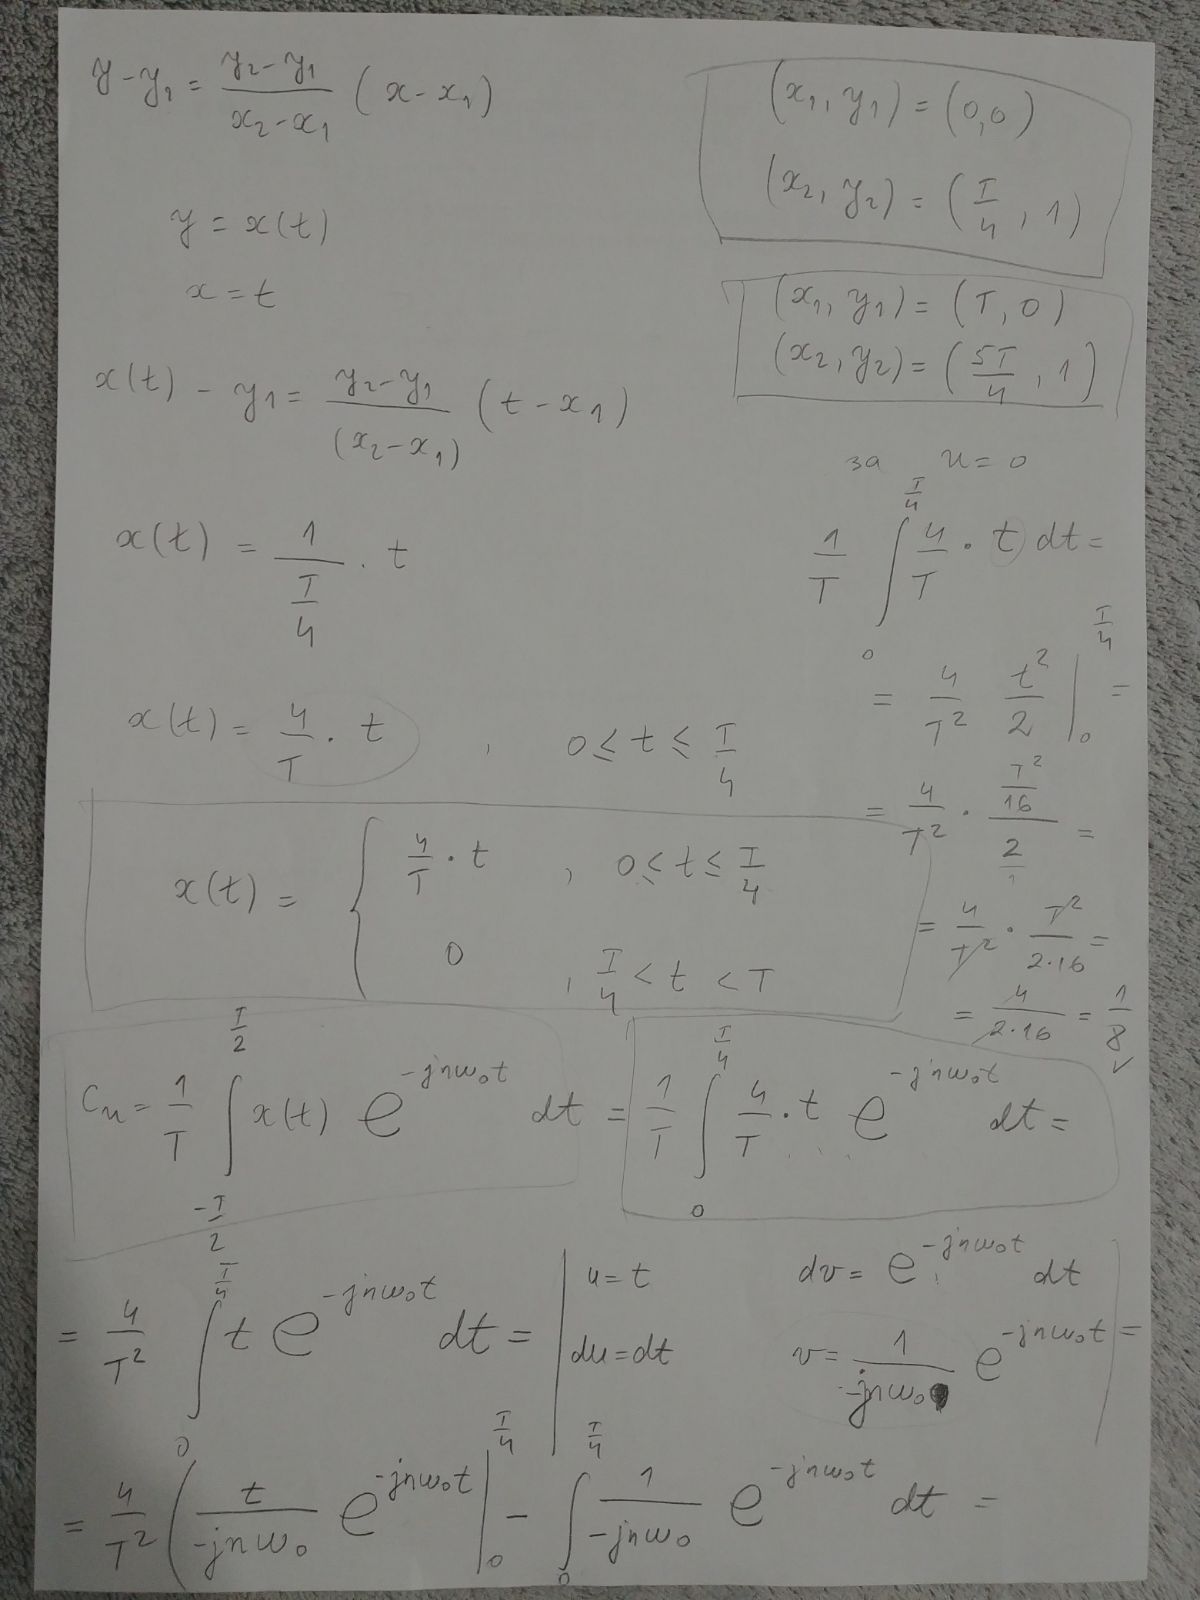 y - y₁ = (y₂ - y₁)/(x₂ - x₁) (x - x₁)
(x₁, y₁) = (0,0)
(x₂, y₂) = (T/4, 1)
y = x(t)
x = t
(x₁, y₁) = (T, 0)
(x₂, y₂) = (5T/4, 1)
x(t) - y₁ = (y₂ - y₁)/(x₂ - x₁) (t - x₁)
x(t) = 1/(T/4) · t
x(t) = 4/T · t , 0 ≤ t ≤ T/4
за n = 0
1/T ∫₀^(T/4) 4/T · t dt =
= 4/T² t²/2 |₀^(T/4) =
= 4/T² · (T²/16)/(2/1) =
= 4/T² · T²/(2·16) =
= 4/(2·16) = 1/8 ✓
x(t) = { 4/T · t , 0 ≤ t ≤ T/4
0 , T/4 < t < T
Cn = 1/T ∫_(-T/2)^(T/2) x(t) e^(-jnω₀t) dt = 1/T ∫₀^(T/4) 4/T · t e^(-jnω₀t) dt =
= 4/T² ∫₀^(T/4) t e^(-jnω₀t) dt = | u = t dv = e^(-jnω₀t) dt
du = dt v = 1/(-jnω₀) e^(-jnω₀t) | =
= 4/T² ( t/(-jnω₀) e^(-jnω₀t) |₀^(T/4) - ∫₀^(T/4) 1/(-jnω₀) e^(-jnω₀t) dt =